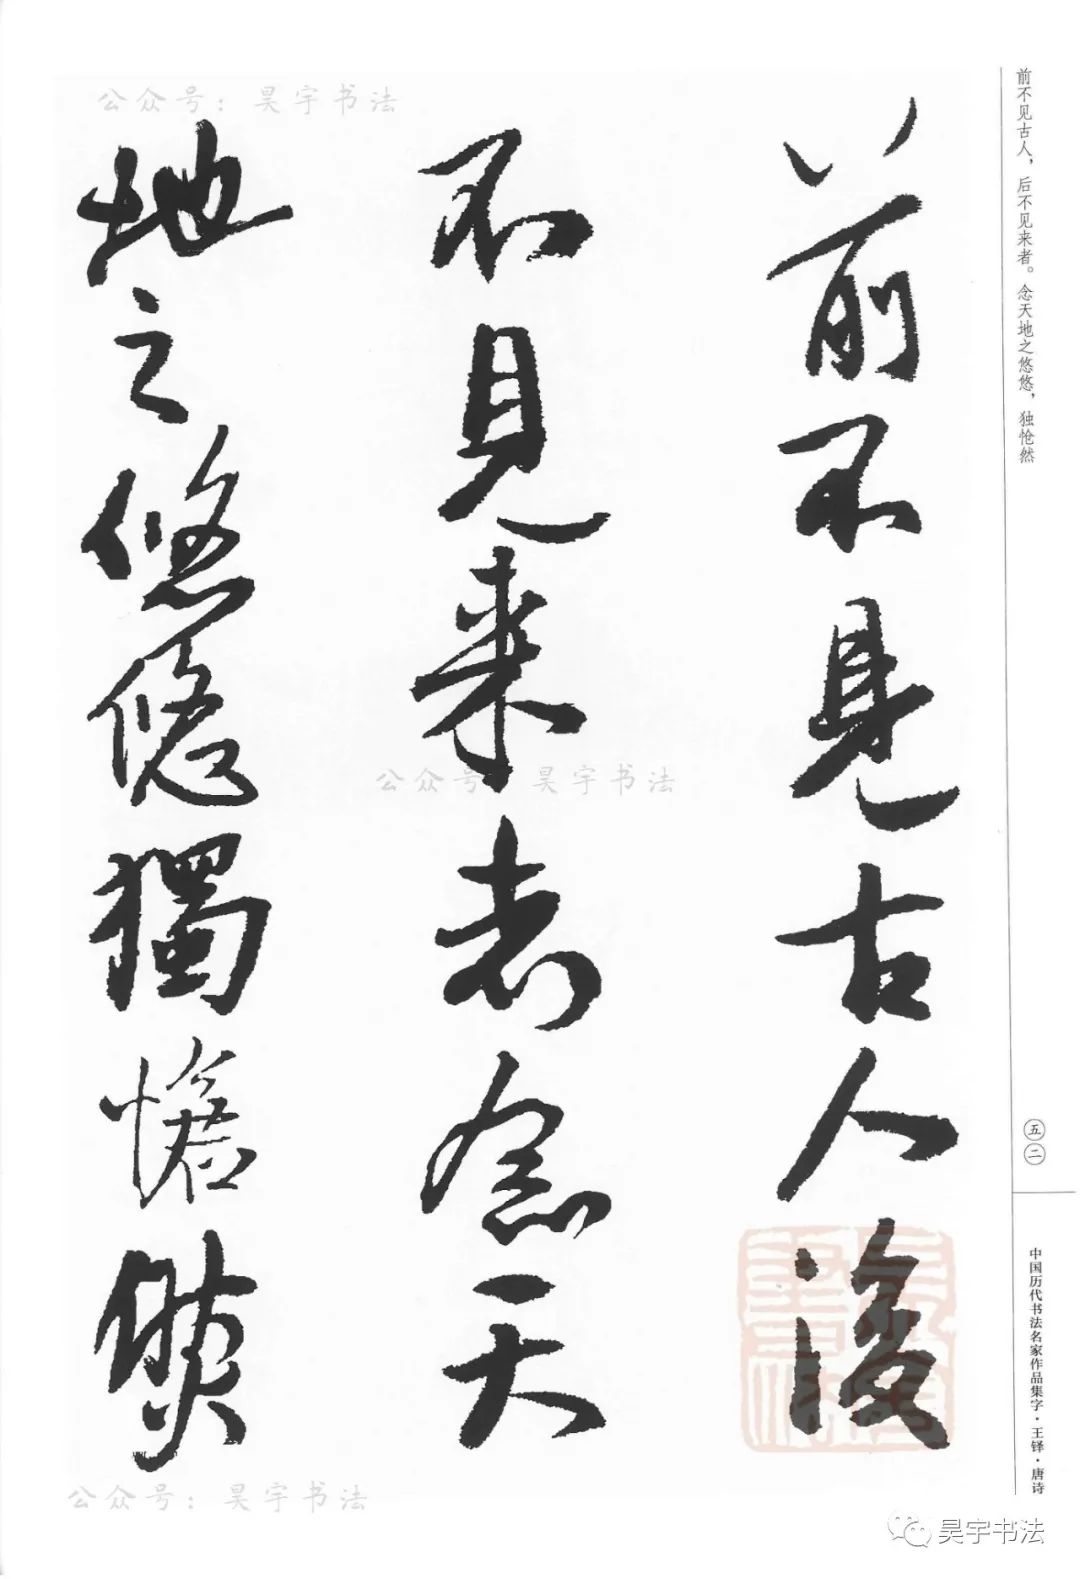 前不见古人，后不见来者。念天地之悠悠，独怆然
前不見古人後
不見来者念天
地之悠悠獨愴然
五二
中国历代书法名家作品集字·王铎·唐诗
公众号：昊宇书法
公众号：昊宇书法
公众号：昊宇书法
昊宇书法